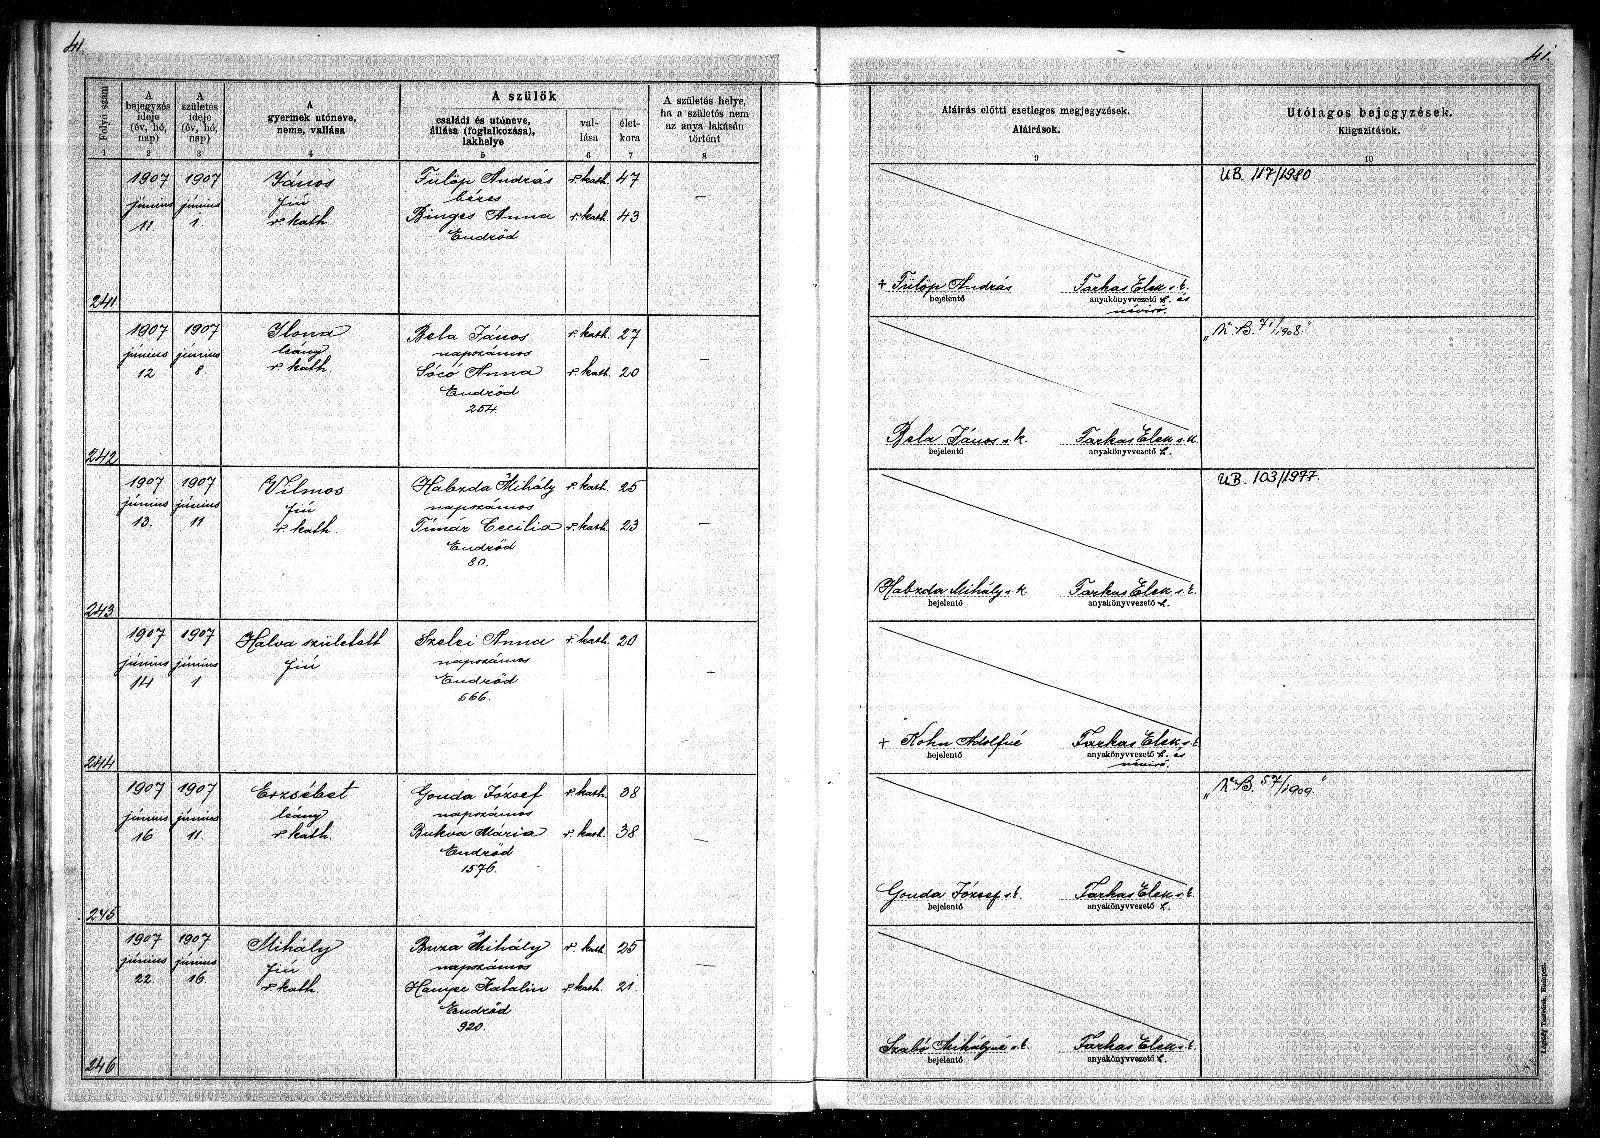 41.
41.
Folyó szám
A bejegyzés ideje (év, hó, nap)
A születés ideje (év, hó, nap)
A gyermek utóneve, neme, vallása
A szülők
családi és utóneve, állása (foglalkozása), lakhelye
val-lása
élet-kora
A születés helye, ha a születés nem az anya lakásán történt
Aláírás előtti esetleges megjegyzések.
Aláírások.
Utólagos bejegyzések.
Kiigazítások.
1 2 3 4 5 6 7 8 9 10
1907 1907 János Fülöp András r. kath. 47
június június fiú béres —
11 1 r. kath. Binges Anna r. kath. 43
Endrőd
UB. 117/1980
241
+ Fülöp András Farkas Elek s. k.
bejelentő anyakönyvvezető h. és
névíró.
1907 1907 Ilona Bela János r. kath. 27
június június leány napszámos —
12 8 r. kath. Sócó Anna r. kath. 20
Endrőd
254.
71/1908."
242
Bela János s. k. Farkas Elek s. k.
bejelentő anyakönyvvezető h.
1907 1907 Vilmos Habzda Mihály r. kath. 25
június június fiú napszámos —
13. 11 r. kath. Tímár Cecilia r. kath. 23
Endrőd
80.
UB. 103/1977.
243
Habzda Mihály s. k. Farkas Elek s. k.
bejelentő anyakönyvvezető h.
1907 1907 Halva született Szelei Anna r. kath. 20
június június fiú napszámos —
14 1 Endrőd
666.
244
+ Kohn Adolfné Farkas Elek s. k.
bejelentő anyakönyvvezető h. és
névíró.
1907 1907 Erzsébet Gonda József r. kath. 38
június június leány napszámos —
16 11 r. kath. Bukva Mária r. kath. 38
Endrőd
1576.
57/1909."
245
Gonda József s. k. Farkas Elek s. k.
bejelentő anyakönyvvezető h.
1907 1907 Mihály Buza Mihály r. kath. 25
június június fiú napszámos —
22. 16 r. kath. Hanyec Katalin r. kath. 21.
Endrőd
920.
246
Szabó Mihályné s. k. Farkas Elek s. k.
bejelentő anyakönyvvezető h.
Budapest.